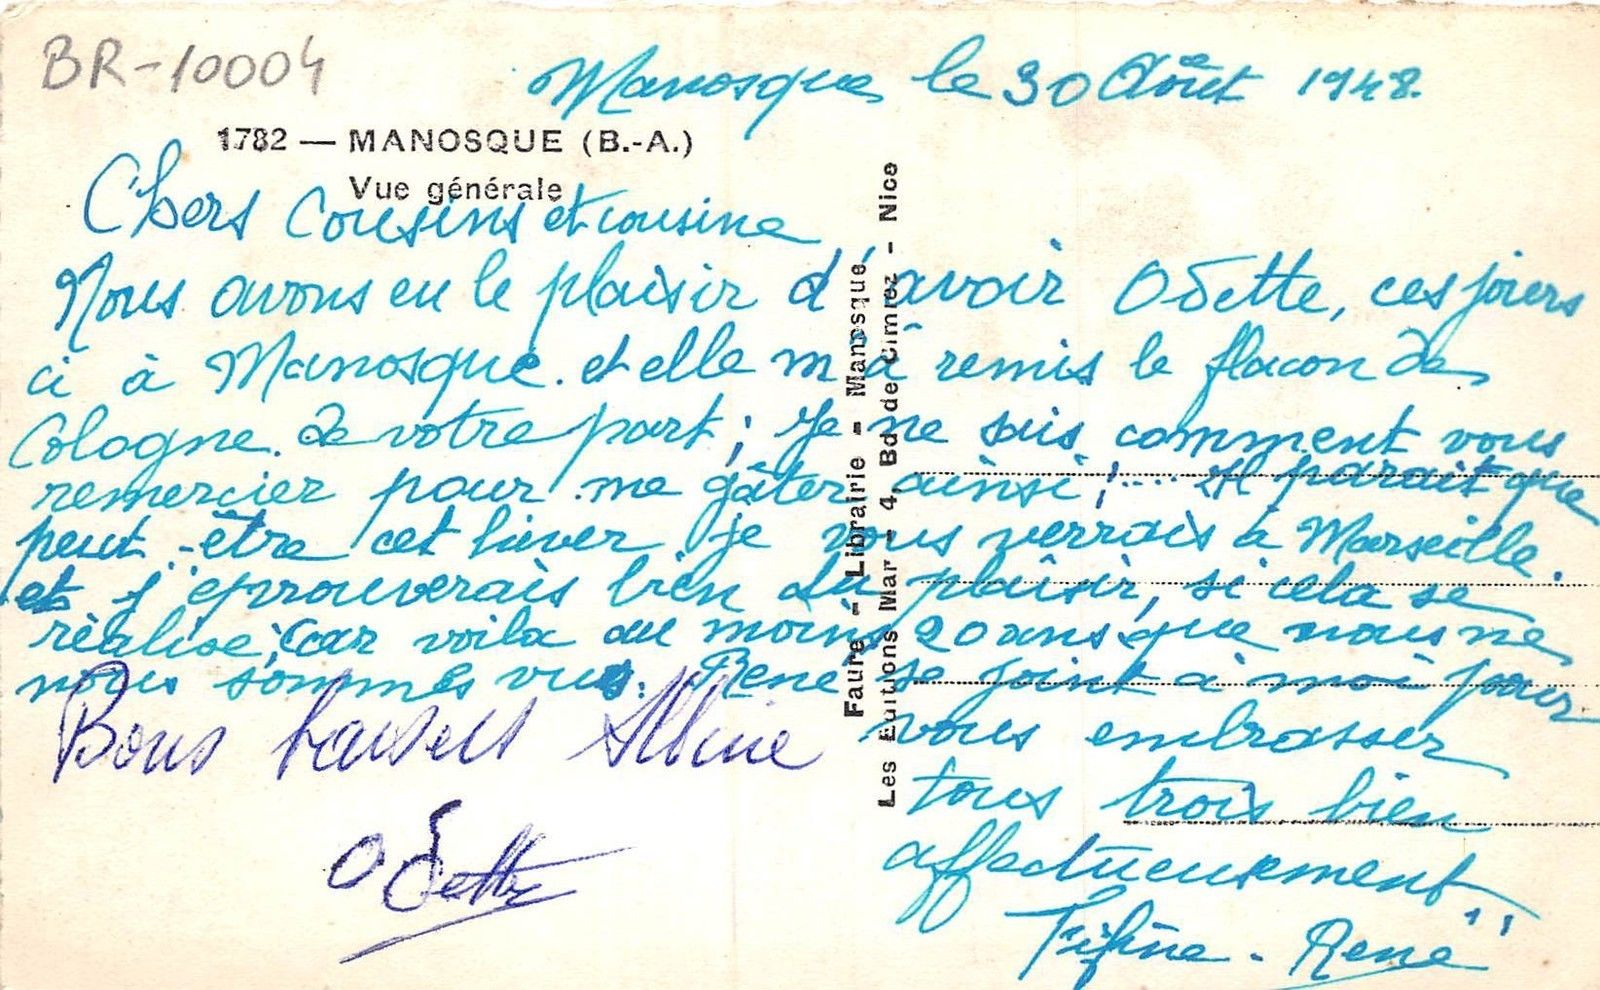 BR-10004
Manosque le 30 Août 1948.
1782 — MANOSQUE (B.-A.)
Vue générale
Chers Cousins et cousine
Nous avons eu le plaisir d'avoir Odette, ces jours
ci à Manosque. et elle m'a remis le flacon de
Cologne. de votre part; Je ne sais comment vous
remercier pour me gâter ainsi;... Il parait que
peut-être cet hiver je vous verrais à Marseille.
et j'eprouverais bien du plaîsir, si cela se
réalise; Car voila au moins 20 ans que nous ne
nous sommes vus. René se joint à moi pour
vous embrasser
tous trois bien
affectueusement
Fifine - René
Bons baisers Albine
Odette
Faure - Librairie - Manosque
Les Editions Mar - 4, Bd de Cimiez - Nice